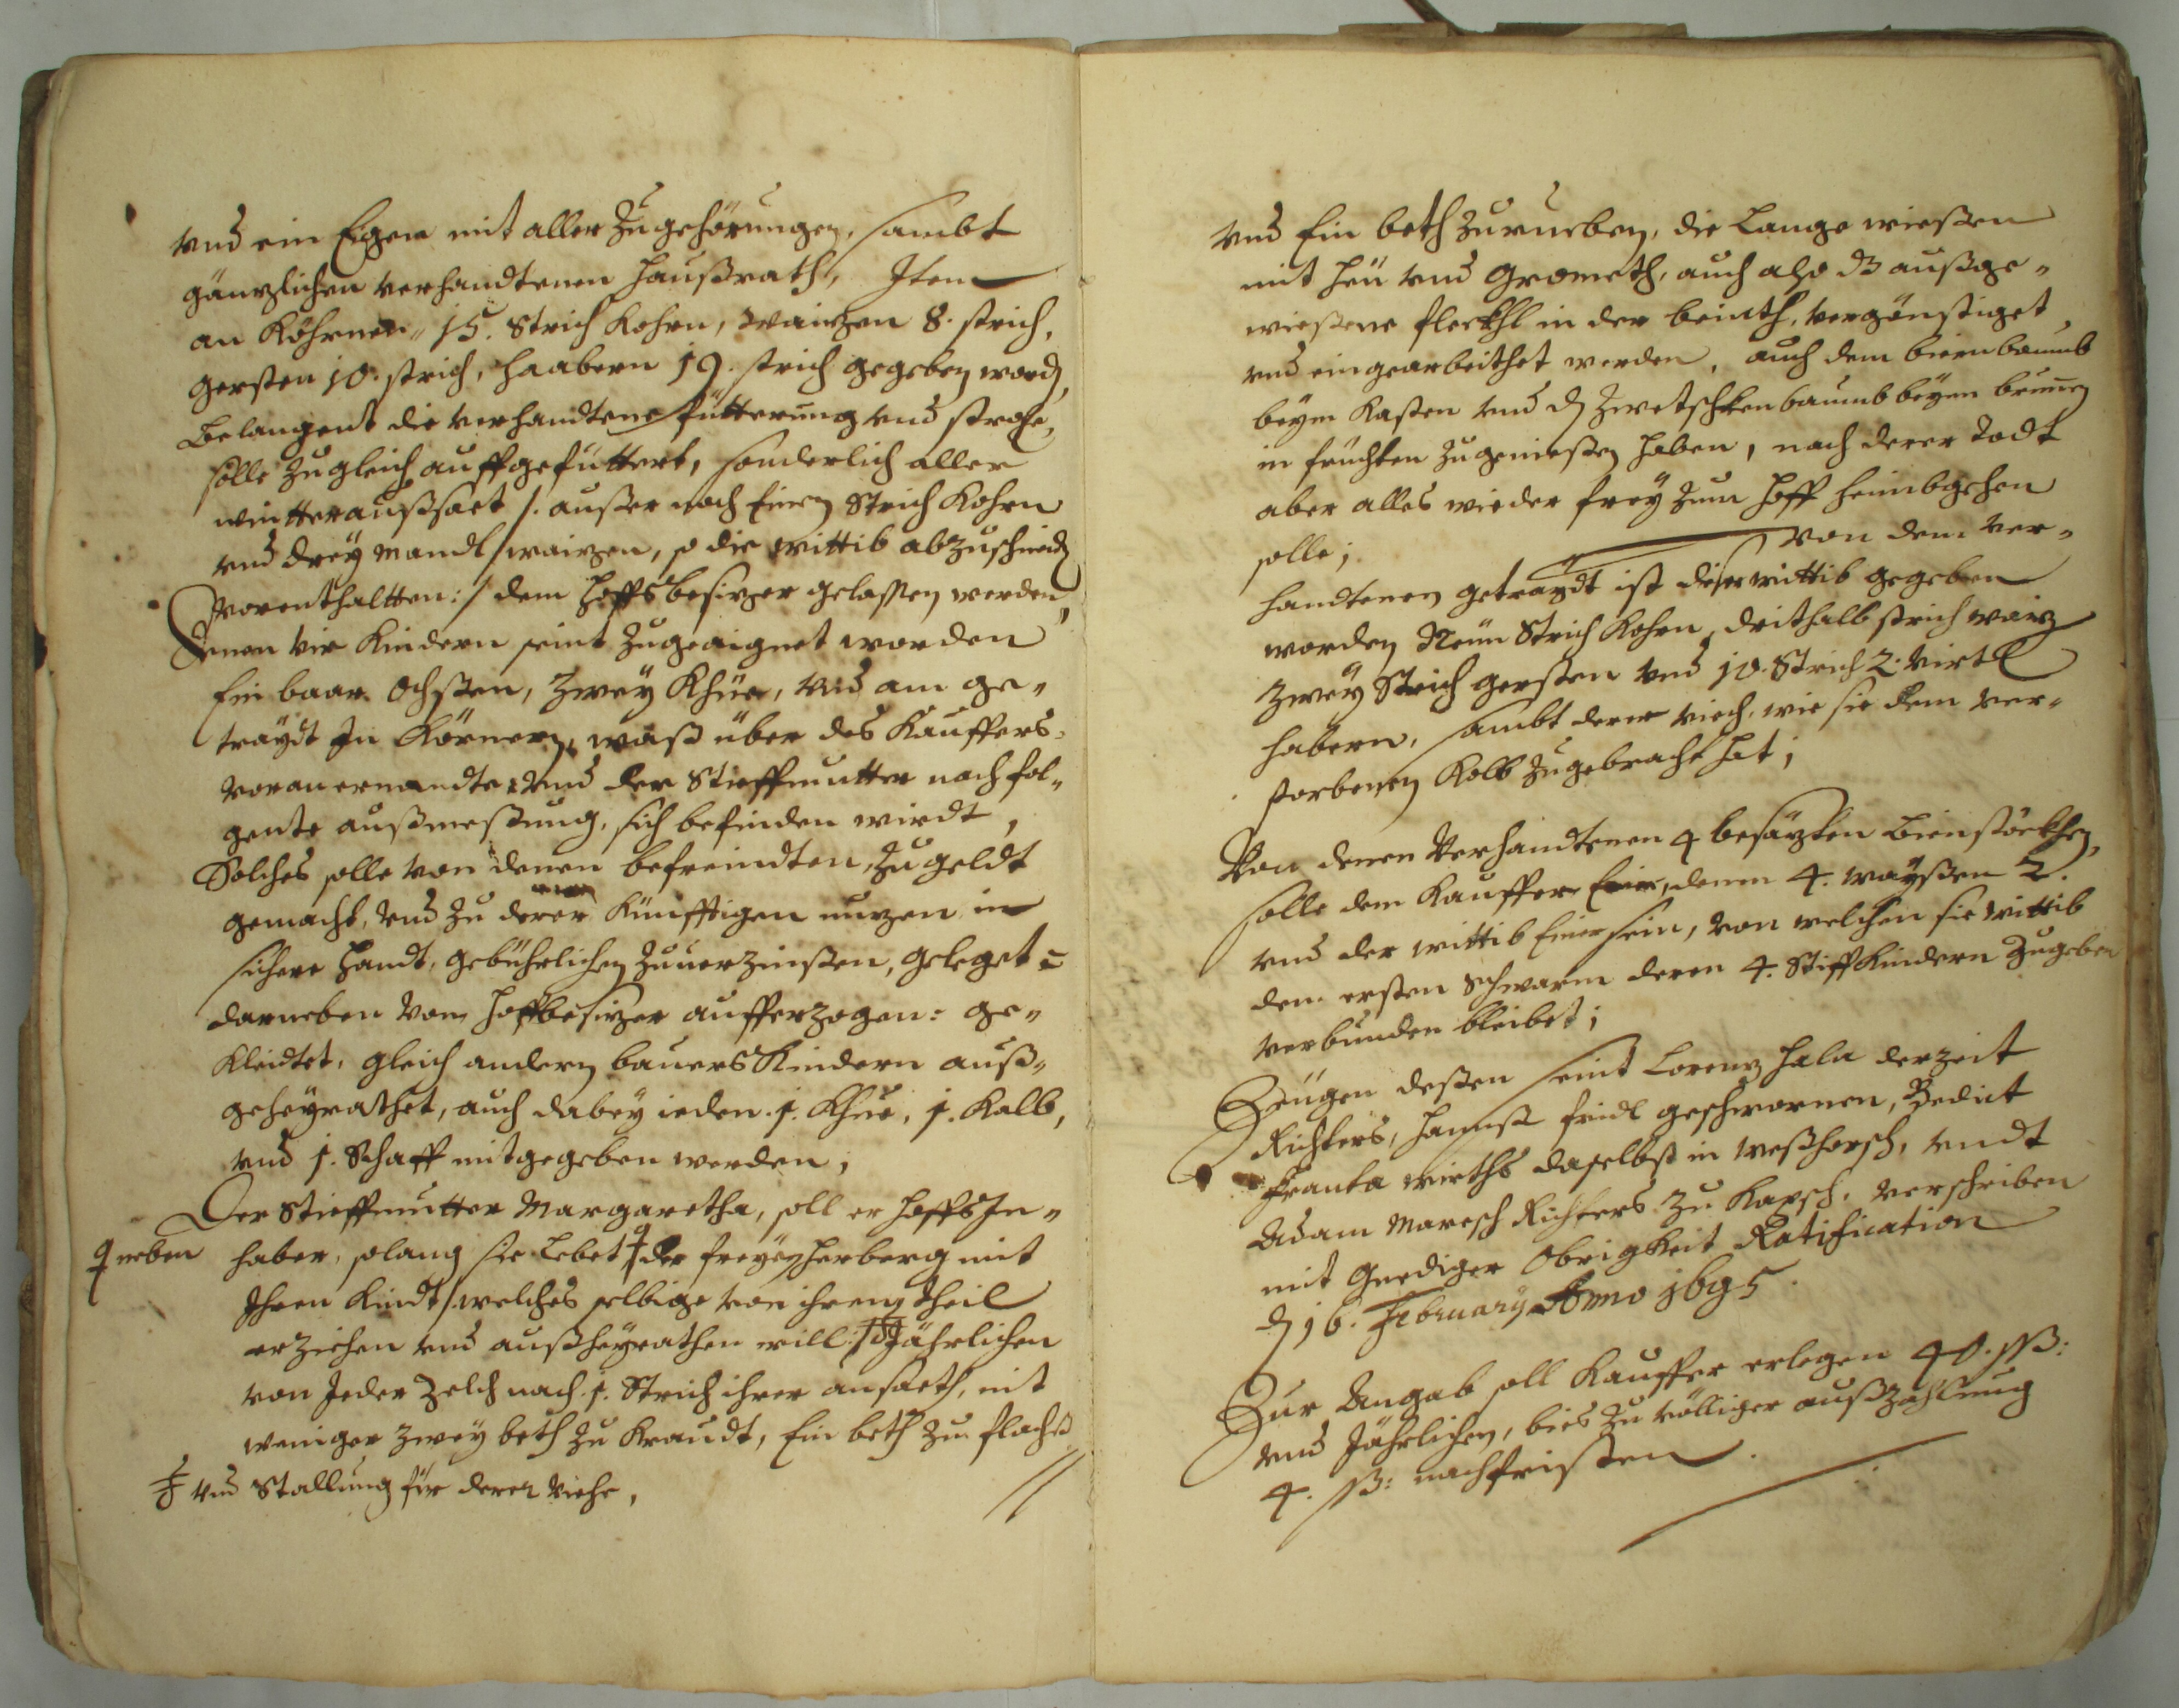 vnd ein Eigen mit aller Zugehörungen, sambt
gänzlichen verhandtenen Haußrath, Item
an Köhrnern 15. Strich Kohrn, Waizen 8. strich,
Gersten 10. strich, Haabern 19. strich gegeben word,
Belangent die verhandtene fütterung vnd strohe,
solle zugleich auffgefüttert, sonderlich aller
wintteraußsaet /: außer noch Einen Strich Kohrn
vnd drey Mandl waizen, so die wittib abzuschneid
Vorenthaltten :/ dem Hoffsbesizer gelassen werden,
Denen vir Kindern seint zugeaignet worden
Ein baar Ochsten, Zwey Khüe, vnd am ge-
traydt In Körnern, waß über des Kauffers-
voran ernandte: vnd der Stieffmutter nachfol-
gente außmessung, sich befinden wirdt,
Solches solle von denen befreindten, zu geldt
gemacht, vnd zu derer Künfftigen nuzen in
sichere Handt, gebührlichen zuuerzinßen, geleget =
darneben vom Hoffbesizer aufferzogen: ge-
Kleidtet, gleich andern bauers Kindern auß-
geheyrathet, auch dabey ieden 1. Khue, 1. Kalb,
vnd 1. Schaff mitgegeben werden;
Der Stieffmutter Margaretha, soll er Hoffs In-
neben haber, solang sie Lebet der freyen Herberg mit
Ihren Kindt /: welches selbige von ihrem theil
erziehen vnd außheyrathen will :/ Jährlichen
von Jeder Zelch nach 1. Strich ihrer ansaeth, nit
weniger zwey beth zu Kraudt, Ein beth zu flachs
vnd Stallung für deren viehe,
vnd Ein beth zu rueben, die Lange wießen
mit heü vnd Grometh, auch also dz außge-
wießene fleckhl in der beinth, vergönstiget
vnd eingearbeithet werden, auch dem biernbaumb
beym Kasten vnd d Zwetschkenbaumb beym brunen
in früchten zugenießen haben, nach derer Todt
aber alles wieder frey zum Hoff heimbgehen
solle; Von dem ver-
handtenen getraydt ist diser wittib gegeben
worden Neün Strich Kohrn, drithalb strich waiz
zwey Strich gersten vnd 10. Strich 2. Virtl
habern, sambt dem viech, wie sie dem ver-
storbenen Kolb zugebracht hat;
Von denen Verhandtenen 4 besäzten Bienstöckhen,
solle dem Kauffer Einer, denen 4. wayßen 2.
vnd der wittib Einer sein, von welchen sie wittib
den ersten Schwarm deren 4. Stiffkindern zugeben
verbunden bleibet;
Zeügen deßen seint Lorenz Hala derzeit
Richters, Hannß fridl geschwornen, Bedict
Franta wirths daselbst in weßhorsch, vndt
Adam Maresch Richters zu Kapsch, verschriben
mit Gnediger Obrigkeit Ratification
d 16. February Anno 1695.
Zur Angab soll Kauffer erlegen 40. ß:
vnd Jährlichen, bies zu völliger außzahlung
4. ß: nachfristen.